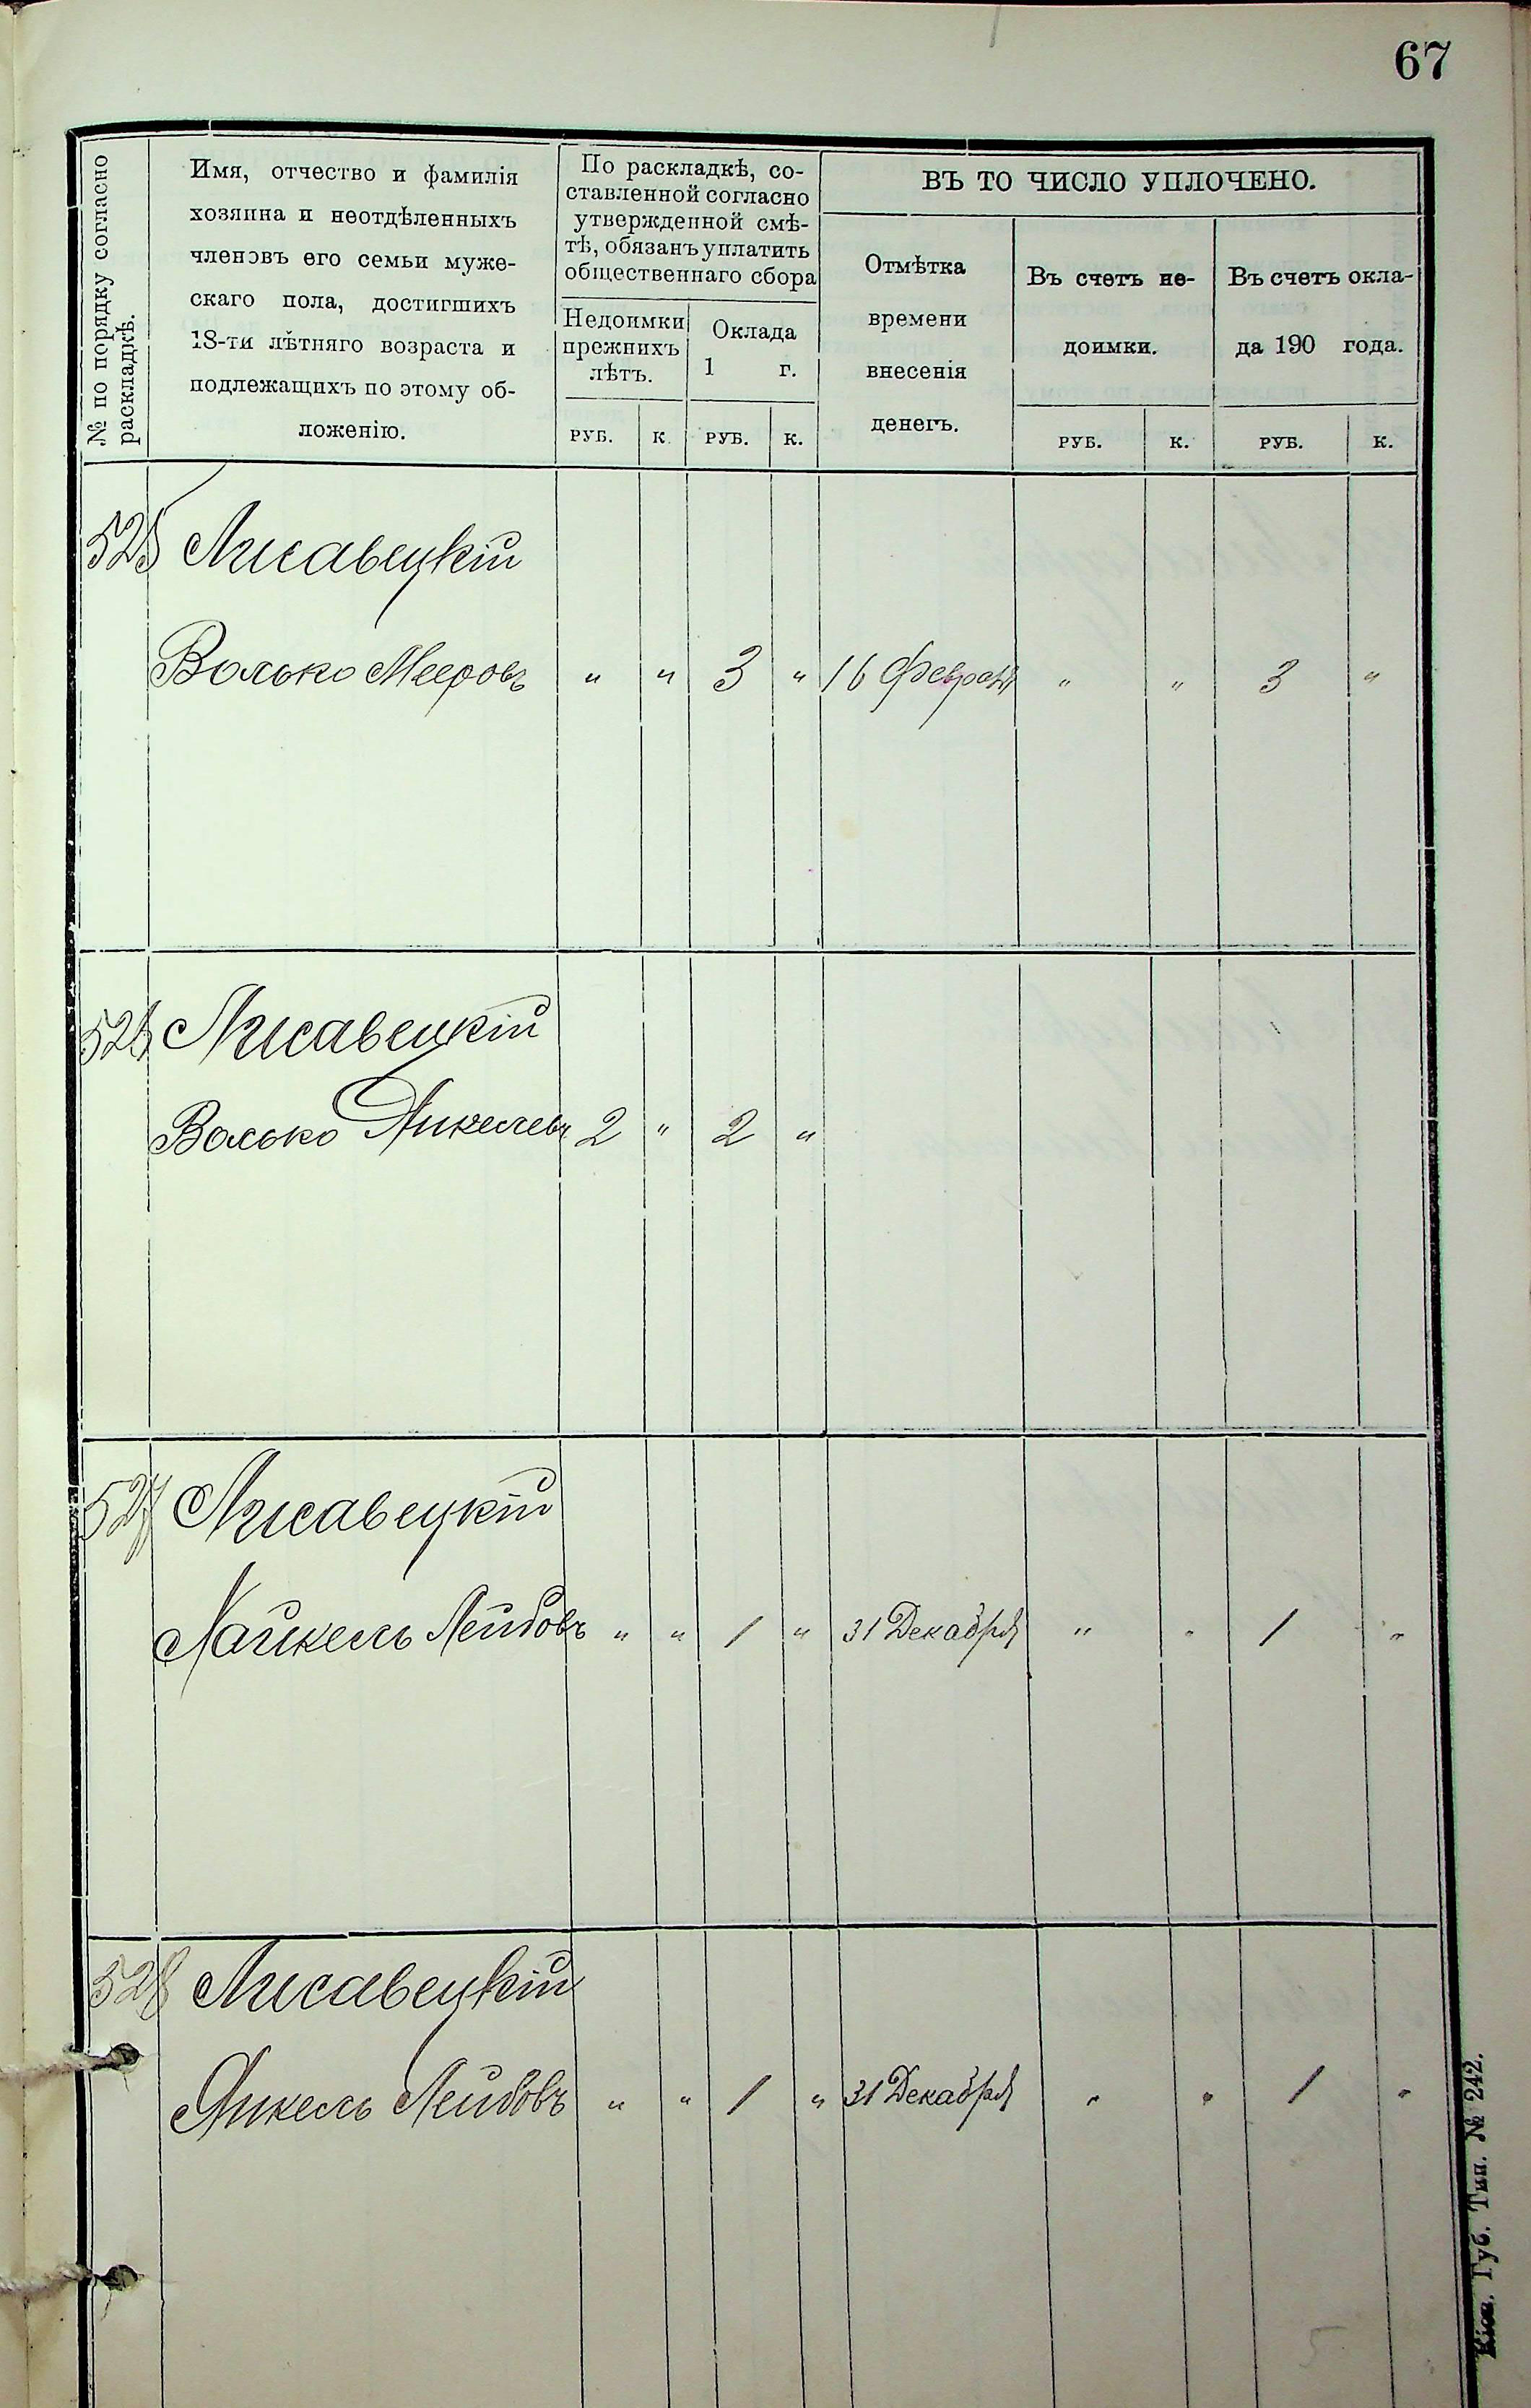 67
№ по порядку согласно
раскладкѣ.
Имя, отчество и фамилія
хозяина и неотдѣленныхъ
членовъ его семьи муже-
скаго пола, достигшихъ
18-ти лѣтняго возраста и
подлежащихъ по этому об-
ложенію.
По раскладкѣ, со-
ставленной согласно
утвержденной смѣ-
тѣ, обязанъ уплатить
общественнаго сбора
Недоимки
прежнихъ
лѣтъ.
Оклада
1 г.
ВЪ ТО ЧИСЛО УПЛОЧЕНО.
Отмѣтка
времени
внесенія
денегъ.
Въ счетъ не-
доимки.
Въ счетъ окла-
да 190 года.
РУБ. К. РУБ. К. РУБ. К. РУБ. К.
525 Лисавецкій
Волько Мееровъ " " 3 " 16 Февраля " " 3 "
526 Лисавецкій
Волько Янкелевъ 2 " 2 "
527 Лисавецкій
Хайкель Лейбовъ " " 1 " 31 Декабря " " 1 "
528 Лисавецкій
Янкель Лейбовъ " " 1 " 31 Декабря " " 1 "
5
Кіев. Губ. Тип. № 242.